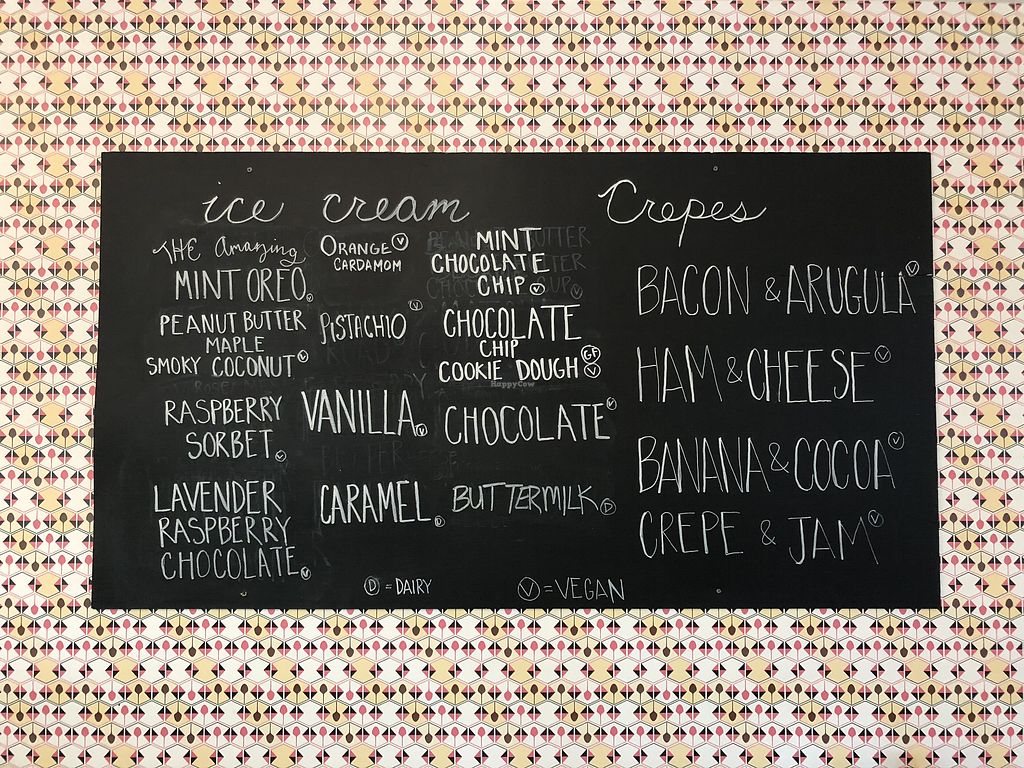 ice cream
THE Amazing
MINT OREO Ⓥ
PEANUT BUTTER
MAPLE
SMOKY COCONUT Ⓥ
RASPBERRY
SORBET Ⓥ
LAVENDER
RASPBERRY
CHOCOLATE Ⓥ
ORANGE Ⓥ
CARDAMOM
PISTACHIO Ⓥ
VANILLA Ⓥ
CARAMEL Ⓓ
MINT
CHOCOLATE
CHIP Ⓥ
CHOCOLATE
CHIP
COOKIE DOUGH GF Ⓥ
HappyCow
CHOCOLATE Ⓥ
BUTTERMILK Ⓓ
Ⓓ = DAIRY
Ⓥ = VEGAN
Crepes
BACON & ARUGULA Ⓥ
HAM & CHEESE Ⓥ
BANANA & COCOA Ⓥ
CREPE & JAM Ⓥ